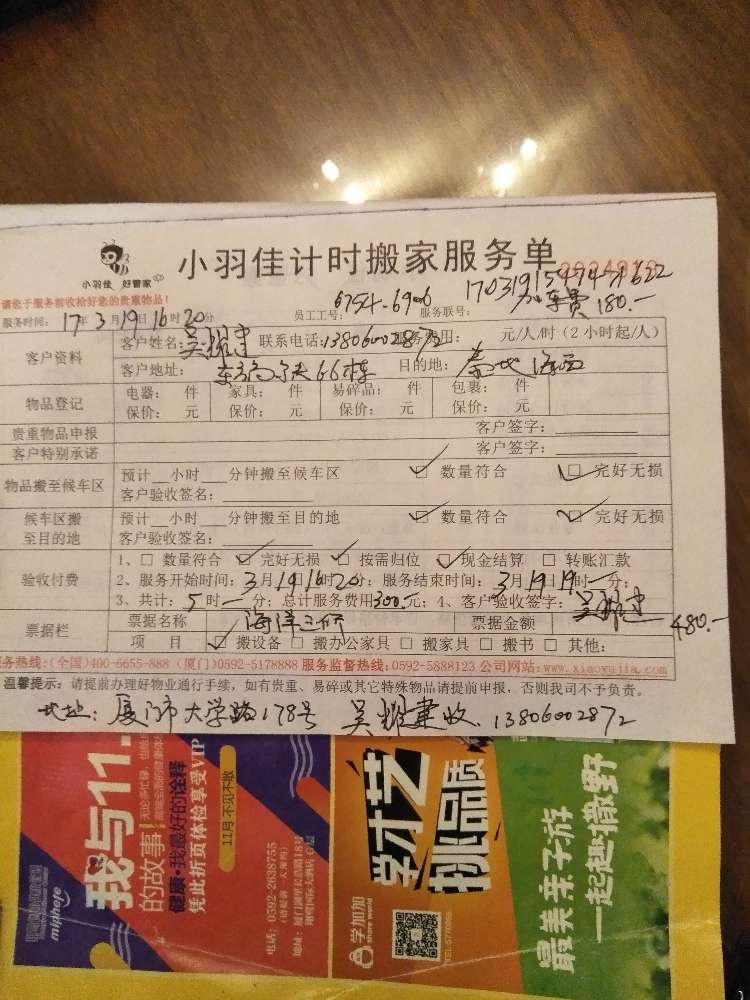 小羽佳 好管家
小羽佳计时搬家服务单
请您于服务前收检好您的贵重物品！
员工工号: 6754-6906 服务联号: 17031915474771622
加车费 180.-
服务时间: 17年3月19日16时20分
客户资料 客户姓名: 吴耀建 联系电话: 13806002872 服务费用: 元/人/时(2小时起/人)
客户地址: 66栋 目的地:
物品登记 电器: 件 家具: 件 易碎品: 件 包裹: 件
保价: 元 保价: 元 保价: 元 保价: 元
贵重物品申报 客户签字:
客户特别承诺 客户签字:
物品搬至候车区 预计__小时___分钟搬至候车区 ☑ 数量符合 ☑ 完好无损
客户验收签名:
候车区搬至目的地 预计__小时___分钟搬至目的地 ☑ 数量符合 ☑ 完好无损
客户验收签名:
验收付费 1、□ 数量符合 ☑ 完好无损 ☑ 按需归位 ☑ 现金结算 □ 转账汇款
2、服务开始时间: 3月19日16时20分; 服务结束时间: 3月19日19时-分;
3、共计: 5时-分; 总计服务费用300元; 4、客户验收签字: 吴耀建
480.-
票据栏 票据名称 海洋三所 票据金额
项 目 ☑ 搬设备 □ 搬办公家具 □ 搬家具 □ 搬书 □ 其他:
服务热线:(全国)400-6655-888 (厦门)0592-5178888 服务监督热线:0592-5888123 公司网站:www.xiaoyujia.com
温馨提示: 请提前办理好物业通行手续，如有贵重、易碎或其它特殊物品请提前申报，否则我司不予负责。
地址: 厦门市大学路178号 吴耀建收. 13806002872
我与11.
的故事
健康·我最好的诠释
凭此折页体检享受VIP
11月 不见不散
电话: 0592-2638755
学才艺
挑品质
学加加
share world
最美亲子游
一起趣撒野